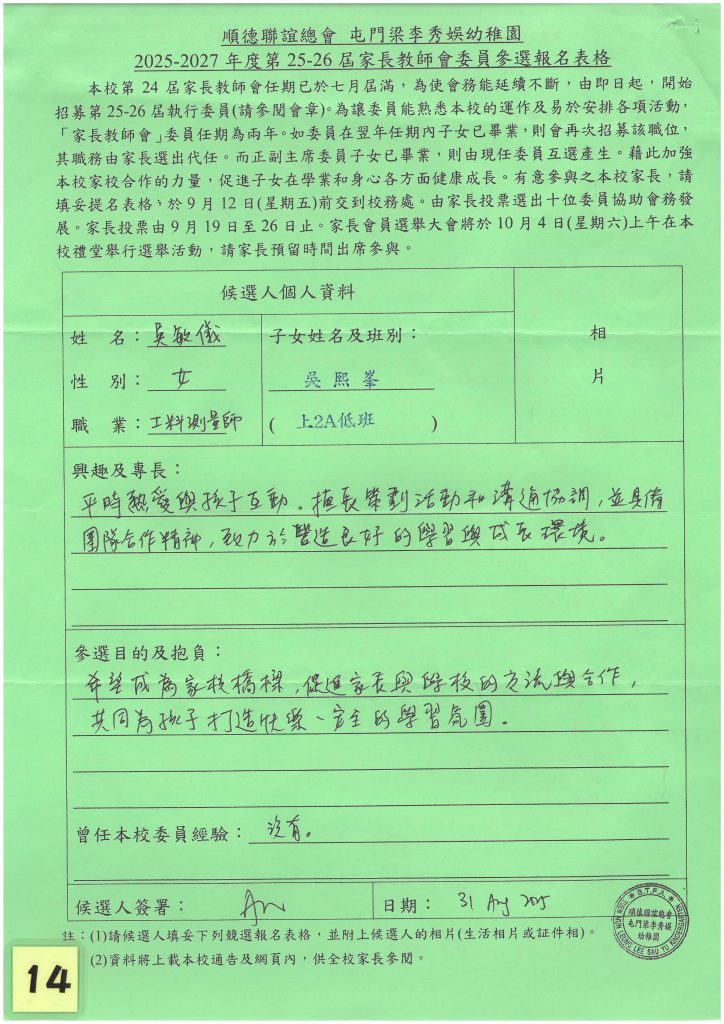 順德聯誼總會 屯門梁李秀娛幼稚園
2025-2027 年度第 25-26 屆家長教師會委員參選報名表格
本校第 24 屆家長教師會任期已於七月屆滿，為使會務能延續不斷，由即日起，開始
招募第 25-26 屆執行委員(請參閱會章)。為讓委員能熟悉本校的運作及易於安排各項活動，
「家長教師會」委員任期為兩年。如委員在翌年任期內子女已畢業，則會再次招募該職位，
其職務由家長選出代任。而正副主席委員子女已畢業，則由現任委員互選產生。藉此加強
本校家校合作的力量，促進子女在學業和身心各方面健康成長。有意參與之本校家長，請
填妥提名表格，於 9 月 12 日(星期五)前交到校務處。由家長投票選出十位委員協助會務發
展。家長投票由 9 月 19 日至 26 日止。家長會員選舉大會將於 10 月 4 日(星期六)上午在本
校禮堂舉行選舉活動，請家長預留時間出席參與。
候選人個人資料
相
片
姓 名：吳敏儀
子女姓名及班別：
性 別：女
吳熙峯
職 業：工料測量師
( 上2A低班 )
興趣及專長：
平時熱愛與孩子互動。擅長策劃活動和溝通協調，並具備
團隊合作精神，致力於營造良好的學習與成長環境。
參選目的及抱負：
希望成為家校橋樑，促進家長與學校的交流與合作，
共同為孩子打造快樂、安全的學習氛圍。
曾任本校委員經驗：沒有。
候選人簽署：
日期：31 Aug 2025
S.T.F.A.
順德聯誼總會
屯門梁李秀娛
幼稚園
TUEN MUN LEUNG LEE SAU YU KINDERGARTEN
註：(1)請候選人填妥下列競選報名表格，並附上候選人的相片(生活相片或証件相)。
(2)資料將上載本校通告及網頁內，供全校家長參閱。
14